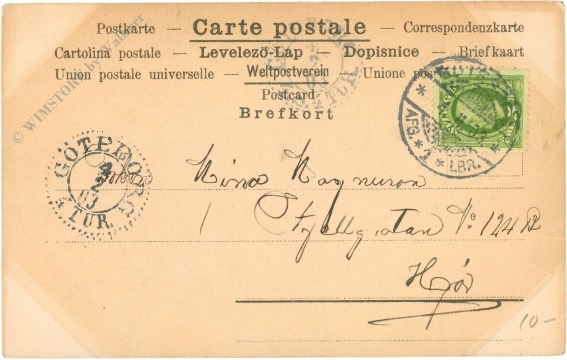 Postkarte — Carte postale — Correspondenzkarte
Cartolina postale — Levelezö-Lap — Dopisnice — Briefkaart
Union postale universelle — Weltpostverein — Unione pos
Postcard
Brefkort
© WIMSTORE by Walker
GÖTEBORG
4
2
03
4. TUR.
TUR.
AFG. * 1 * LBR.
Nina Magnuson
N:o 124 A
10-